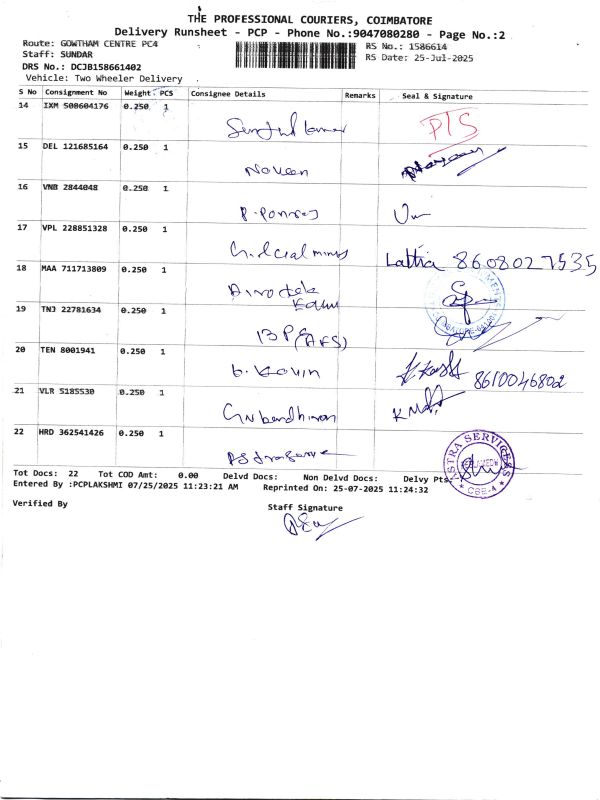 THE PROFESSIONAL COURIERS, COIMBATORE
Delivery Runsheet - PCP - Phone No.:9047080280 - Page No.:2
Route: GOWTHAM CENTRE PC4
RS No.: 1586614
Staff: SUNDAR
RS Date: 25-Jul-2025
DRS No.: DCJB158661402
Vehicle: Two Wheeler Delivery
S No Consignment No Weight PCS Consignee Details Remarks Seal & Signature
14 IXM 500604176 0.250 1 PTS
15 DEL 121685164 0.250 1
Naveen
16 VNB 2844048 0.250 1
P. Ponraj
17 VPL 228851328 0.250 1
Laltha 8608027535
18 MAA 711713809 0.250 1
19 TNJ 22781634 0.250 1
BP (AFS)
20 TEN 8001941 0.250 1
8610046802
21 VLR 5185530 0.250 1
22 HRD 362541426 0.250 1
ASTRA SERVICES
CBE-4
Tot Docs: 22 Tot COD Amt: 0.00 Delvd Docs: Non Delvd Docs: Delvy Pts:
Entered By :PCPLAKSHMI 07/25/2025 11:23:21 AM Reprinted On: 25-07-2025 11:24:32
Verified By
Staff Signature